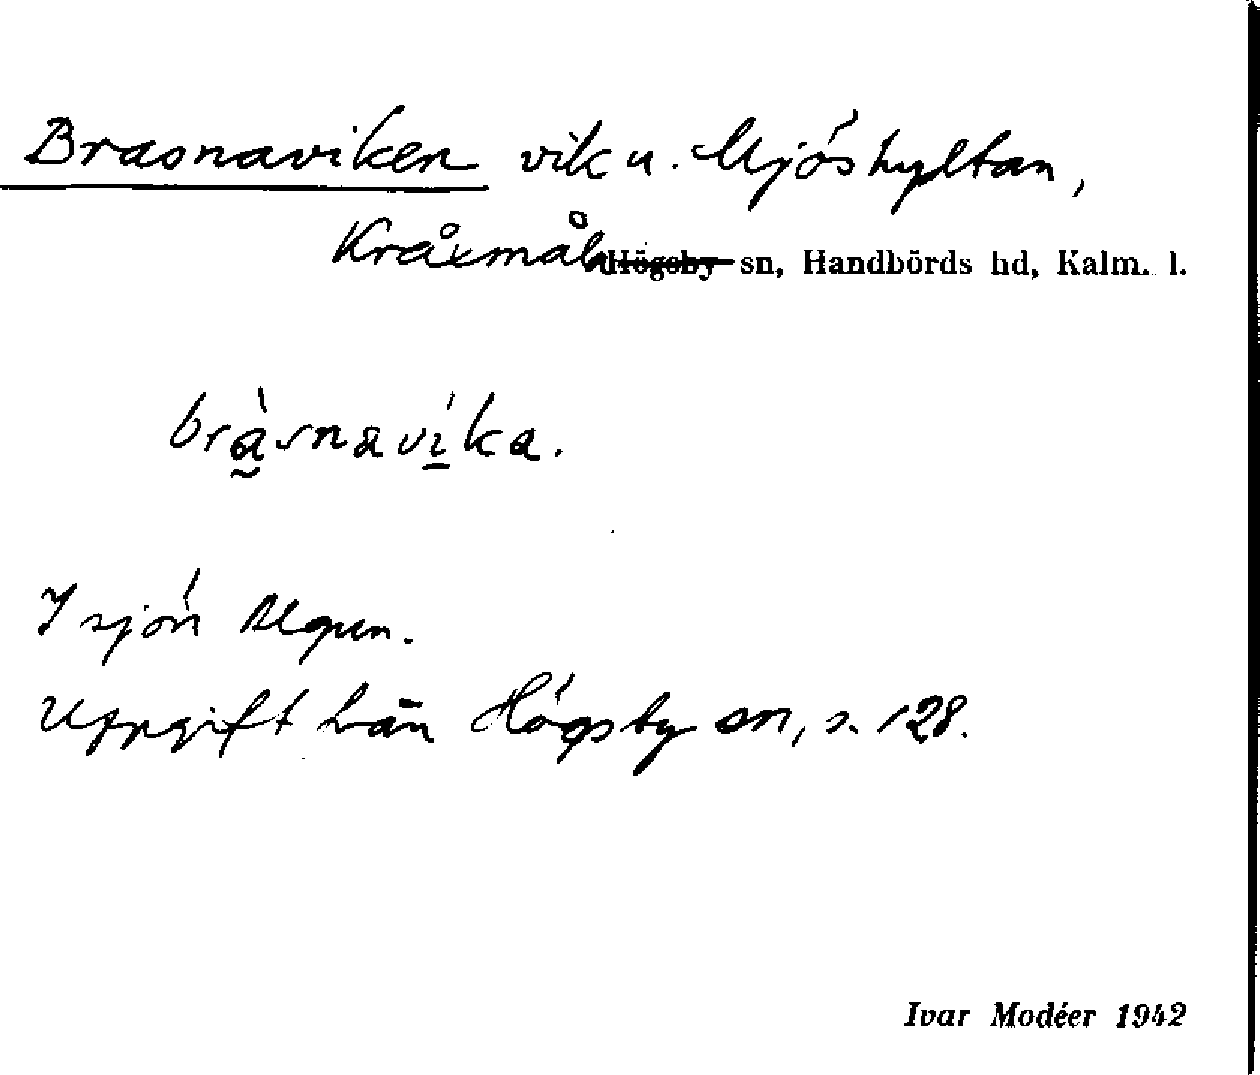 Brasnaviken vik u. Mjöshyltan,
Kråksmåla Högsby sn, Handbörds hd, Kalm. l.
bràsnavíka.
I sjön Algun.
Uppgift från Högsby sn, s. 128.
Ivar Modéer 1942